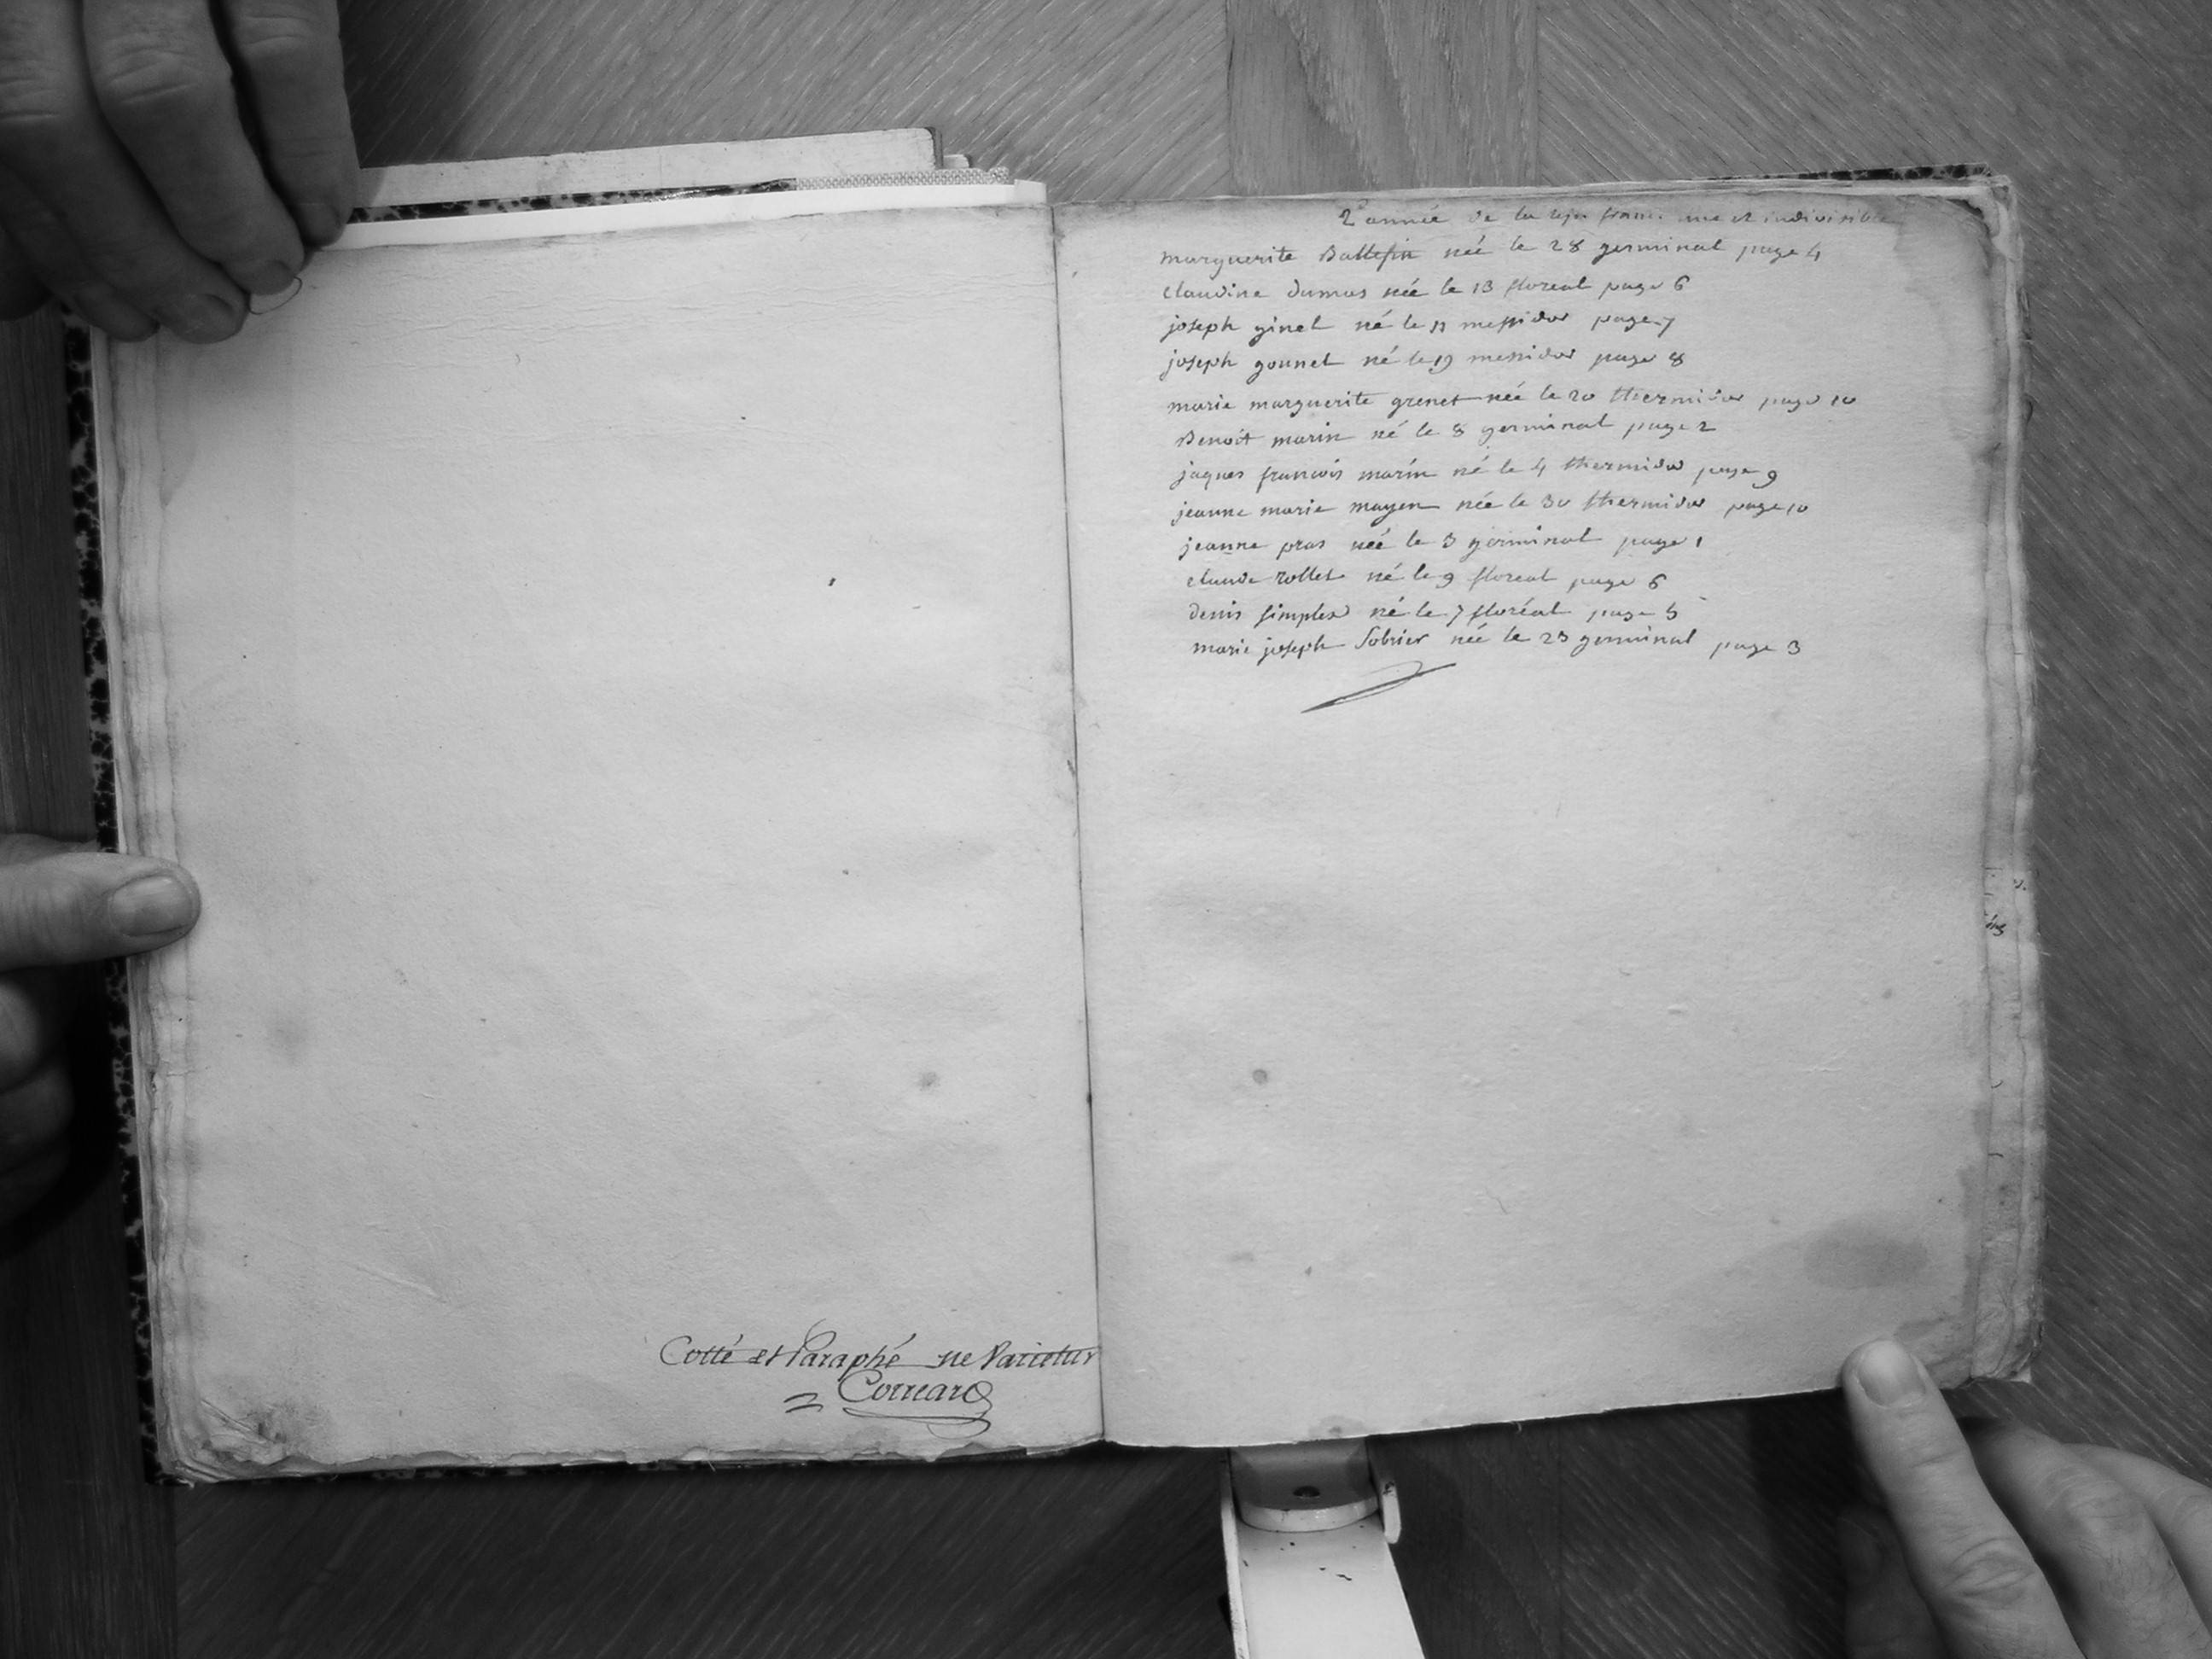 Cotté et Paraphé ne Varietur
Correard
2e année de la rep. franc. une et indivisible
marguerite Ballefin née le 28 germinal page 4
claudine dumas née le 13 floreal page 6
joseph ginel né le 11 messidor page 7
joseph gounel né le 19 messidor page 8
marie marguerite grenet née le 20 thermidor page 10
Benoit marin né le 8 germinal page 2
jaques francois marin né le 4 thermidor page 9
jeanne marie mayen née le 30 thermidor page 10
jeanne pras née le 3 germinal page 1
claude rollet né le 9 floreal page 6
denis simplex né le 7 floréal page 5
marie joseph Sobrier née le 23 germinal page 3